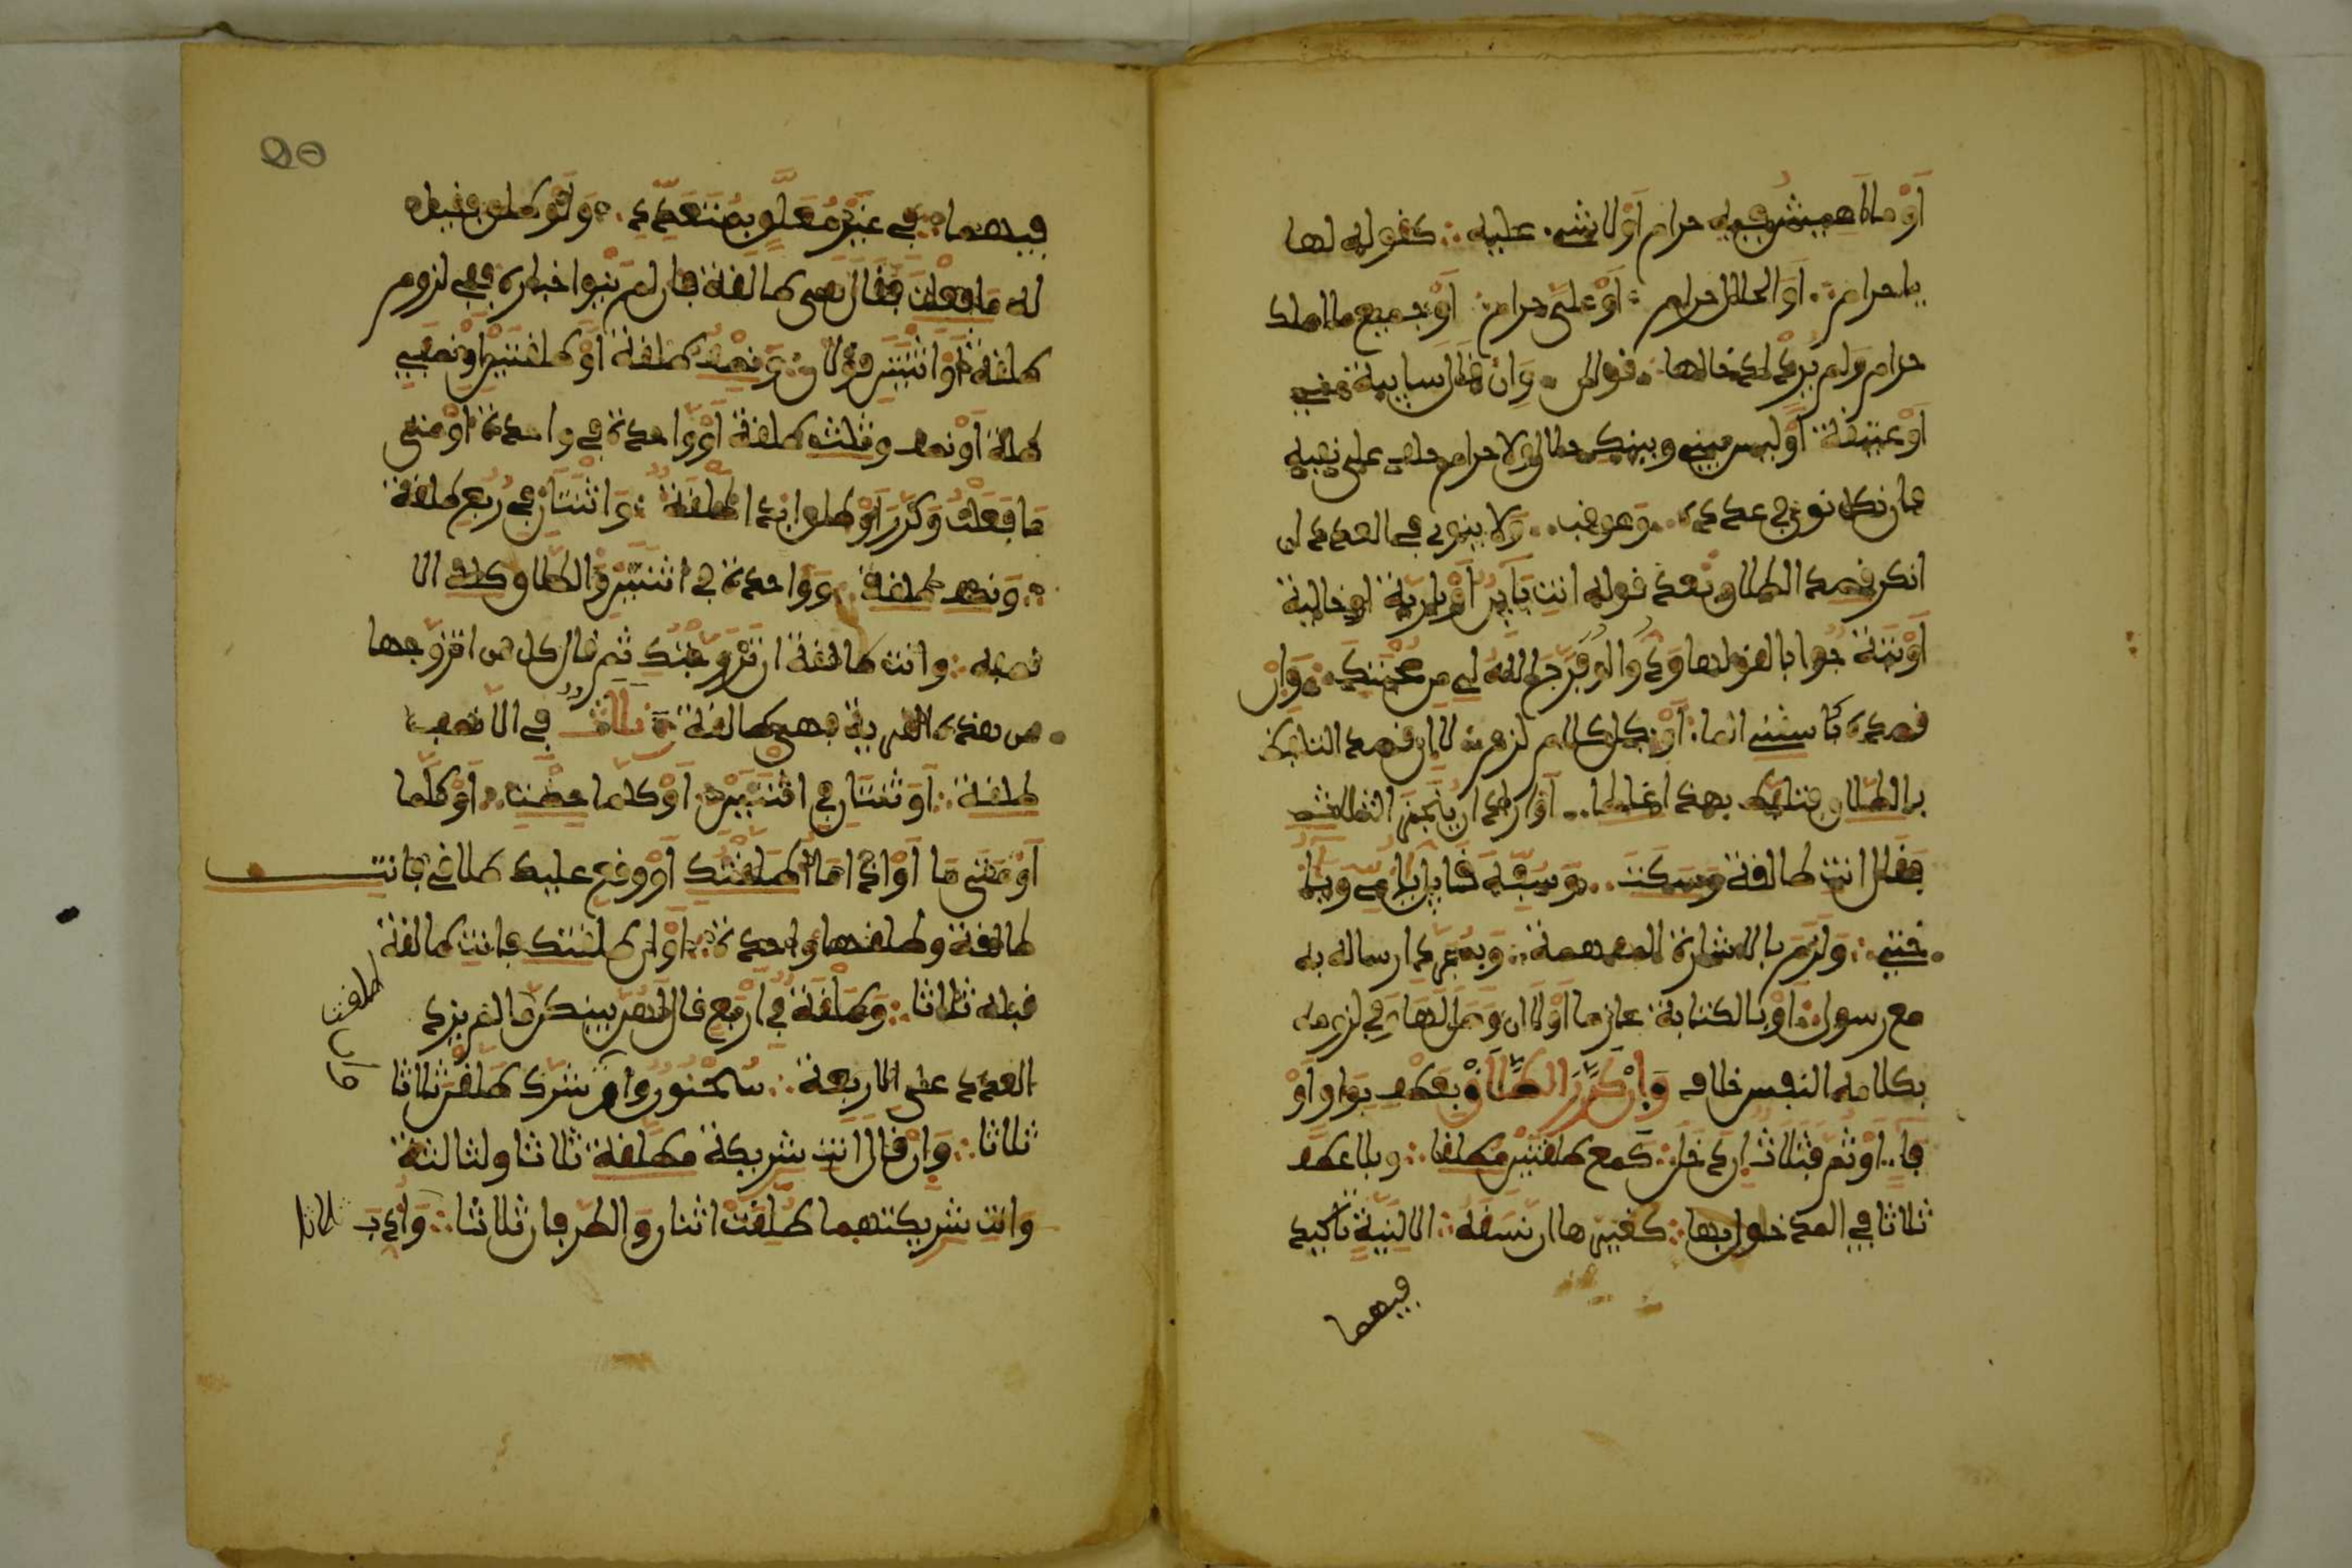 أو ما أعيش فيه حرام أو لا شيء عليه كقوله لها
يا حرام أو الحلال حرام أو علي حرام أو جميع ما املك
حرام ولم يرد ادخالها قولان وإن قال سايبة مني
أو عتيقة أو ليس بيني وبينك حلال ولا حرام حلف على نفيه
فان نكل نوي في عدده وعوقب ولا ينوى في العدد ان
انكر قصد الطلاق بعد قوله انت باين أو برية او خالية
أو بتة جوابا لقولها أود لو فرج الله لي من صحبتك وإن
قصده كاسقني الما أو بكل كلام لزم لا ان قصد التلفظ
بالطلاق فتلفظ بهذا غلطا أو اراد ان ينجز الثلاث
فقال انت طالق وسكت وسفه قايل يا امي ويا
ختي ولزم بالاشارة المفهمة وبمجرد ارساله به
مع رسول أو بالكتابة عازما أو لا ان وصل لها وفي لزومه
بكلامه النفسي خلاف وإن كرر الطلاق بعطف بواو أو
فاء أو ثم فثلاث إن دخل كمع طلقتين مطلقا وبلا عطف
ثلاثا في المدخول بها كغيرها ان نسقه الا لنية تاكيد
فيهما
20
فيهما في غير معلق بمتعدد ولو طلق فقيل
له ما فعلت فقال هي طالق فان لم ينو اخباره ففي لزوم
طلقة أو اثنتين قولان ونصف طلقة أو طلقتين أو نصفي
طلقة أو نصف وثلث طلقة أو واحدة في واحدة أو متى
ما فعلت وكرر أو طالق ابدا طلقة واثنتان في ربع طلقة
ونصف طلقة وواحدة في اثنتين والطلاق كله الا
نصفه وانت طالق ان تزوجتك ثم قال كل من اتزوجها
من هذه القرية فهي طالق وثلاث في الا نصف
طلقة أو ثنتان في اثنتين أو كلما حضت أو كلما
أو متى ما أو اذا ما طلقتك أو وقع عليك طلاقي فانت
طالق وطلقها واحدة أو ان طلقتك فانت طالق
قبله ثلاثا وطلقة في أربع قال لهن بينكن ما لم يزد
العدد على الاربعة سحنون وان شرك طلقن ثلاثا
ثلاثا وإن قال انت شريكة مطلقة ثلاثا ولثالثة
وانت شريكتهما طلقت اثنان والطرفان ثلاثا وأدب